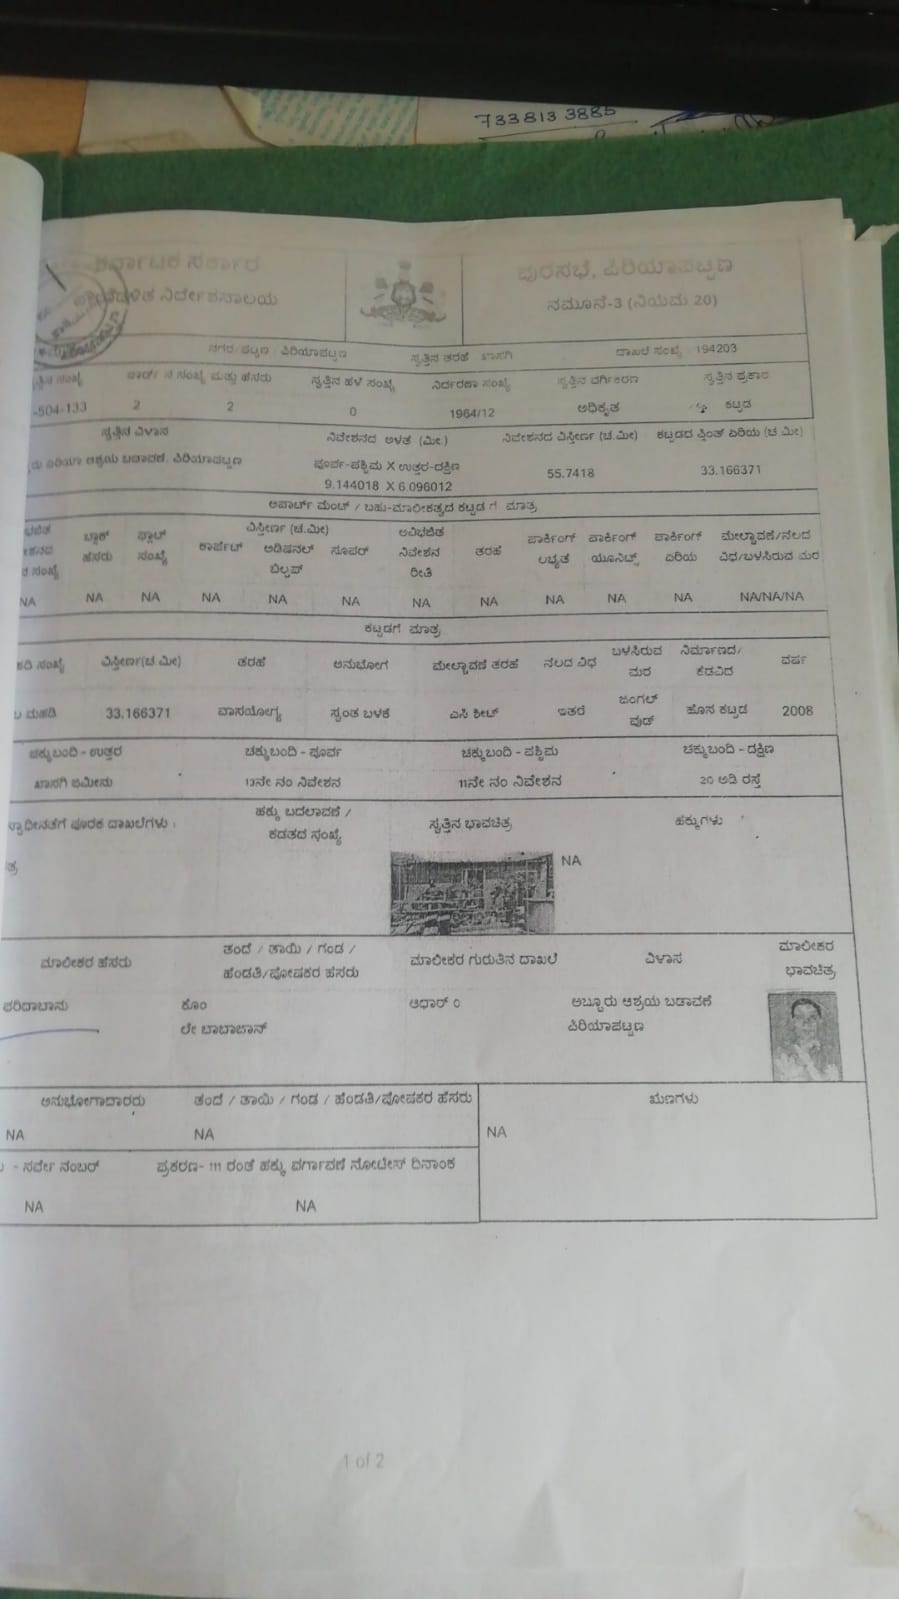 733813 3885
ಕರ್ನಾಟಕ ಸರ್ಕಾರ
ಪುರಸಭೆ, ಪಿರಿಯಾಪಟ್ಟಣ
ನಿರ್ದೇಶನಾಲಯ
ನಮೂನೆ-3 (ನಿಯಮ 20)
ನಗರ/ಪಟ್ಟಣ : ಪಿರಿಯಾಪಟ್ಟಣ ಸ್ವತ್ತಿನ ತರಹೆ ಖಾಸಗಿ ದಾಖಲೆ ಸಂಖ್ಯೆ 194203
ಸಂಖ್ಯೆ ವಾರ್ಡ್ ನ ಸಂಖ್ಯೆ ಮತ್ತು ಹೆಸರು ಸ್ವತ್ತಿನ ಹಳೆ ಸಂಖ್ಯೆ ನಿರ್ದರಣಾ ಸಂಖ್ಯೆ ಸ್ವತ್ತಿನ ವರ್ಗೀಕರಣ ಸ್ವತ್ತಿನ ಪ್ರಕಾರ
-504-133 2 2 0 1964/12 ಅಧಿಕೃತ ಕಟ್ಟಡ
ಸ್ವತ್ತಿನ ವಿಳಾಸ ನಿವೇಶನದ ಅಳತೆ (ಮೀ.) ನಿವೇಶನದ ವಿಸ್ತೀರ್ಣ (ಚ.ಮೀ) ಕಟ್ಟಡದ ಪ್ಲಿಂತ್ ಏರಿಯ (ಚ.ಮೀ)
ಏರಿಯಾ ಆಶ್ರಯ ಬಡಾವಣೆ, ಪಿರಿಯಾಪಟ್ಟಣ ಪೂರ್ವ-ಪಶ್ಚಿಮ X ಉತ್ತರ-ದಕ್ಷಿಣ 55.7418 33.166371
9.144018 X 6.096012
ಅಪಾರ್ಟ್ ಮೆಂಟ್ / ಬಹು-ಮಾಲೀಕತ್ವದ ಕಟ್ಟಡಗೆ ಮಾತ್ರ
ಬ್ಲಾಕ್ ಫ್ಲಾಟ್ ವಿಸ್ತೀರ್ಣ (ಚ.ಮೀ) ಅವಿಭಜಿತ ಪಾರ್ಕಿಂಗ್ ಪಾರ್ಕಿಂಗ್ ಪಾರ್ಕಿಂಗ್ ಮೇಲ್ಚಾವಣಿ/ನೆಲದ
ಹೆಸರು ಸಂಖ್ಯೆ ಕಾರ್ಪೆಟ್ ಅಡಿಷನಲ್ ಸೂಪರ್ ನಿವೇಶನ ತರಹೆ ಲಭ್ಯತೆ ಯೂನಿಟ್ಸ್ ಏರಿಯ ವಿಧ/ಬಳಸಿರುವ ಮರ
ಸಂಖ್ಯೆ ಬಿಲ್ಟಪ್ ರೀತಿ
NA NA NA NA NA NA NA NA NA NA NA NA/NA/NA
ಕಟ್ಟಡಗೆ ಮಾತ್ರ
ಸಂಖ್ಯೆ ವಿಸ್ತೀರ್ಣ(ಚ.ಮೀ) ತರಹೆ ಅನುಭೋಗ ಮೇಲ್ಚಾವಣಿ ತರಹೆ ನೆಲದ ವಿಧ ಬಳಸಿರುವ ಮರ ನಿರ್ಮಾಣದ/ ಕೆಡವಿದ ವರ್ಷ
ಮಹಡಿ 33.166371 ವಾಸಯೋಗ್ಯ ಸ್ವಂತ ಬಳಕೆ ಎಸಿ ಶೀಟ್ ಇತರೆ ಜಂಗಲ್ ವುಡ್ ಹೊಸ ಕಟ್ಟಡ 2008
ಚಕ್ಕುಬಂದಿ - ಉತ್ತರ ಚಕ್ಕುಬಂದಿ - ಪೂರ್ವ ಚಕ್ಕುಬಂದಿ - ಪಶ್ಚಿಮ ಚಕ್ಕುಬಂದಿ - ದಕ್ಷಿಣ
ಖಾಸಗಿ ಜಮೀನು 13ನೇ ನಂ ನಿವೇಶನ 11ನೇ ನಂ ನಿವೇಶನ 20 ಅಡಿ ರಸ್ತೆ
ಪೂರಕ ದಾಖಲೆಗಳು ಹಕ್ಕು ಬದಲಾವಣೆ / ಸ್ವತ್ತಿನ ಭಾವಚಿತ್ರ ಹಕ್ಕುಗಳು
ಕಡತದ ಸಂಖ್ಯೆ
NA
ಮಾಲೀಕರ ಹೆಸರು ತಂದೆ / ತಾಯಿ / ಗಂಡ / ಮಾಲೀಕರ ಗುರುತಿನ ದಾಖಲೆ ವಿಳಾಸ ಮಾಲೀಕರ
ಹೆಂಡತಿ/ಪೋಷಕರ ಹೆಸರು ಭಾವಚಿತ್ರ
ಫರಿದಾಬಾನು ಕೊಂ ಆಧಾರ್ 0 ಅಬ್ಬೂರು ಆಶ್ರಯ ಬಡಾವಣೆ
ಲೇ ಬಾಬಾಜಾನ್ ಪಿರಿಯಾಪಟ್ಟಣ
ಅನುಭೋಗದಾರರು ತಂದೆ / ತಾಯಿ / ಗಂಡ / ಹೆಂಡತಿ/ಪೋಷಕರ ಹೆಸರು ಋಣಗಳು
NA NA NA
- ಸರ್ವೇ ನಂಬರ್ ಪ್ರಕರಣ- 111 ರಂತೆ ಹಕ್ಕು ವರ್ಗಾವಣೆ ನೋಟೀಸ್ ದಿನಾಂಕ
NA NA
1 of 2